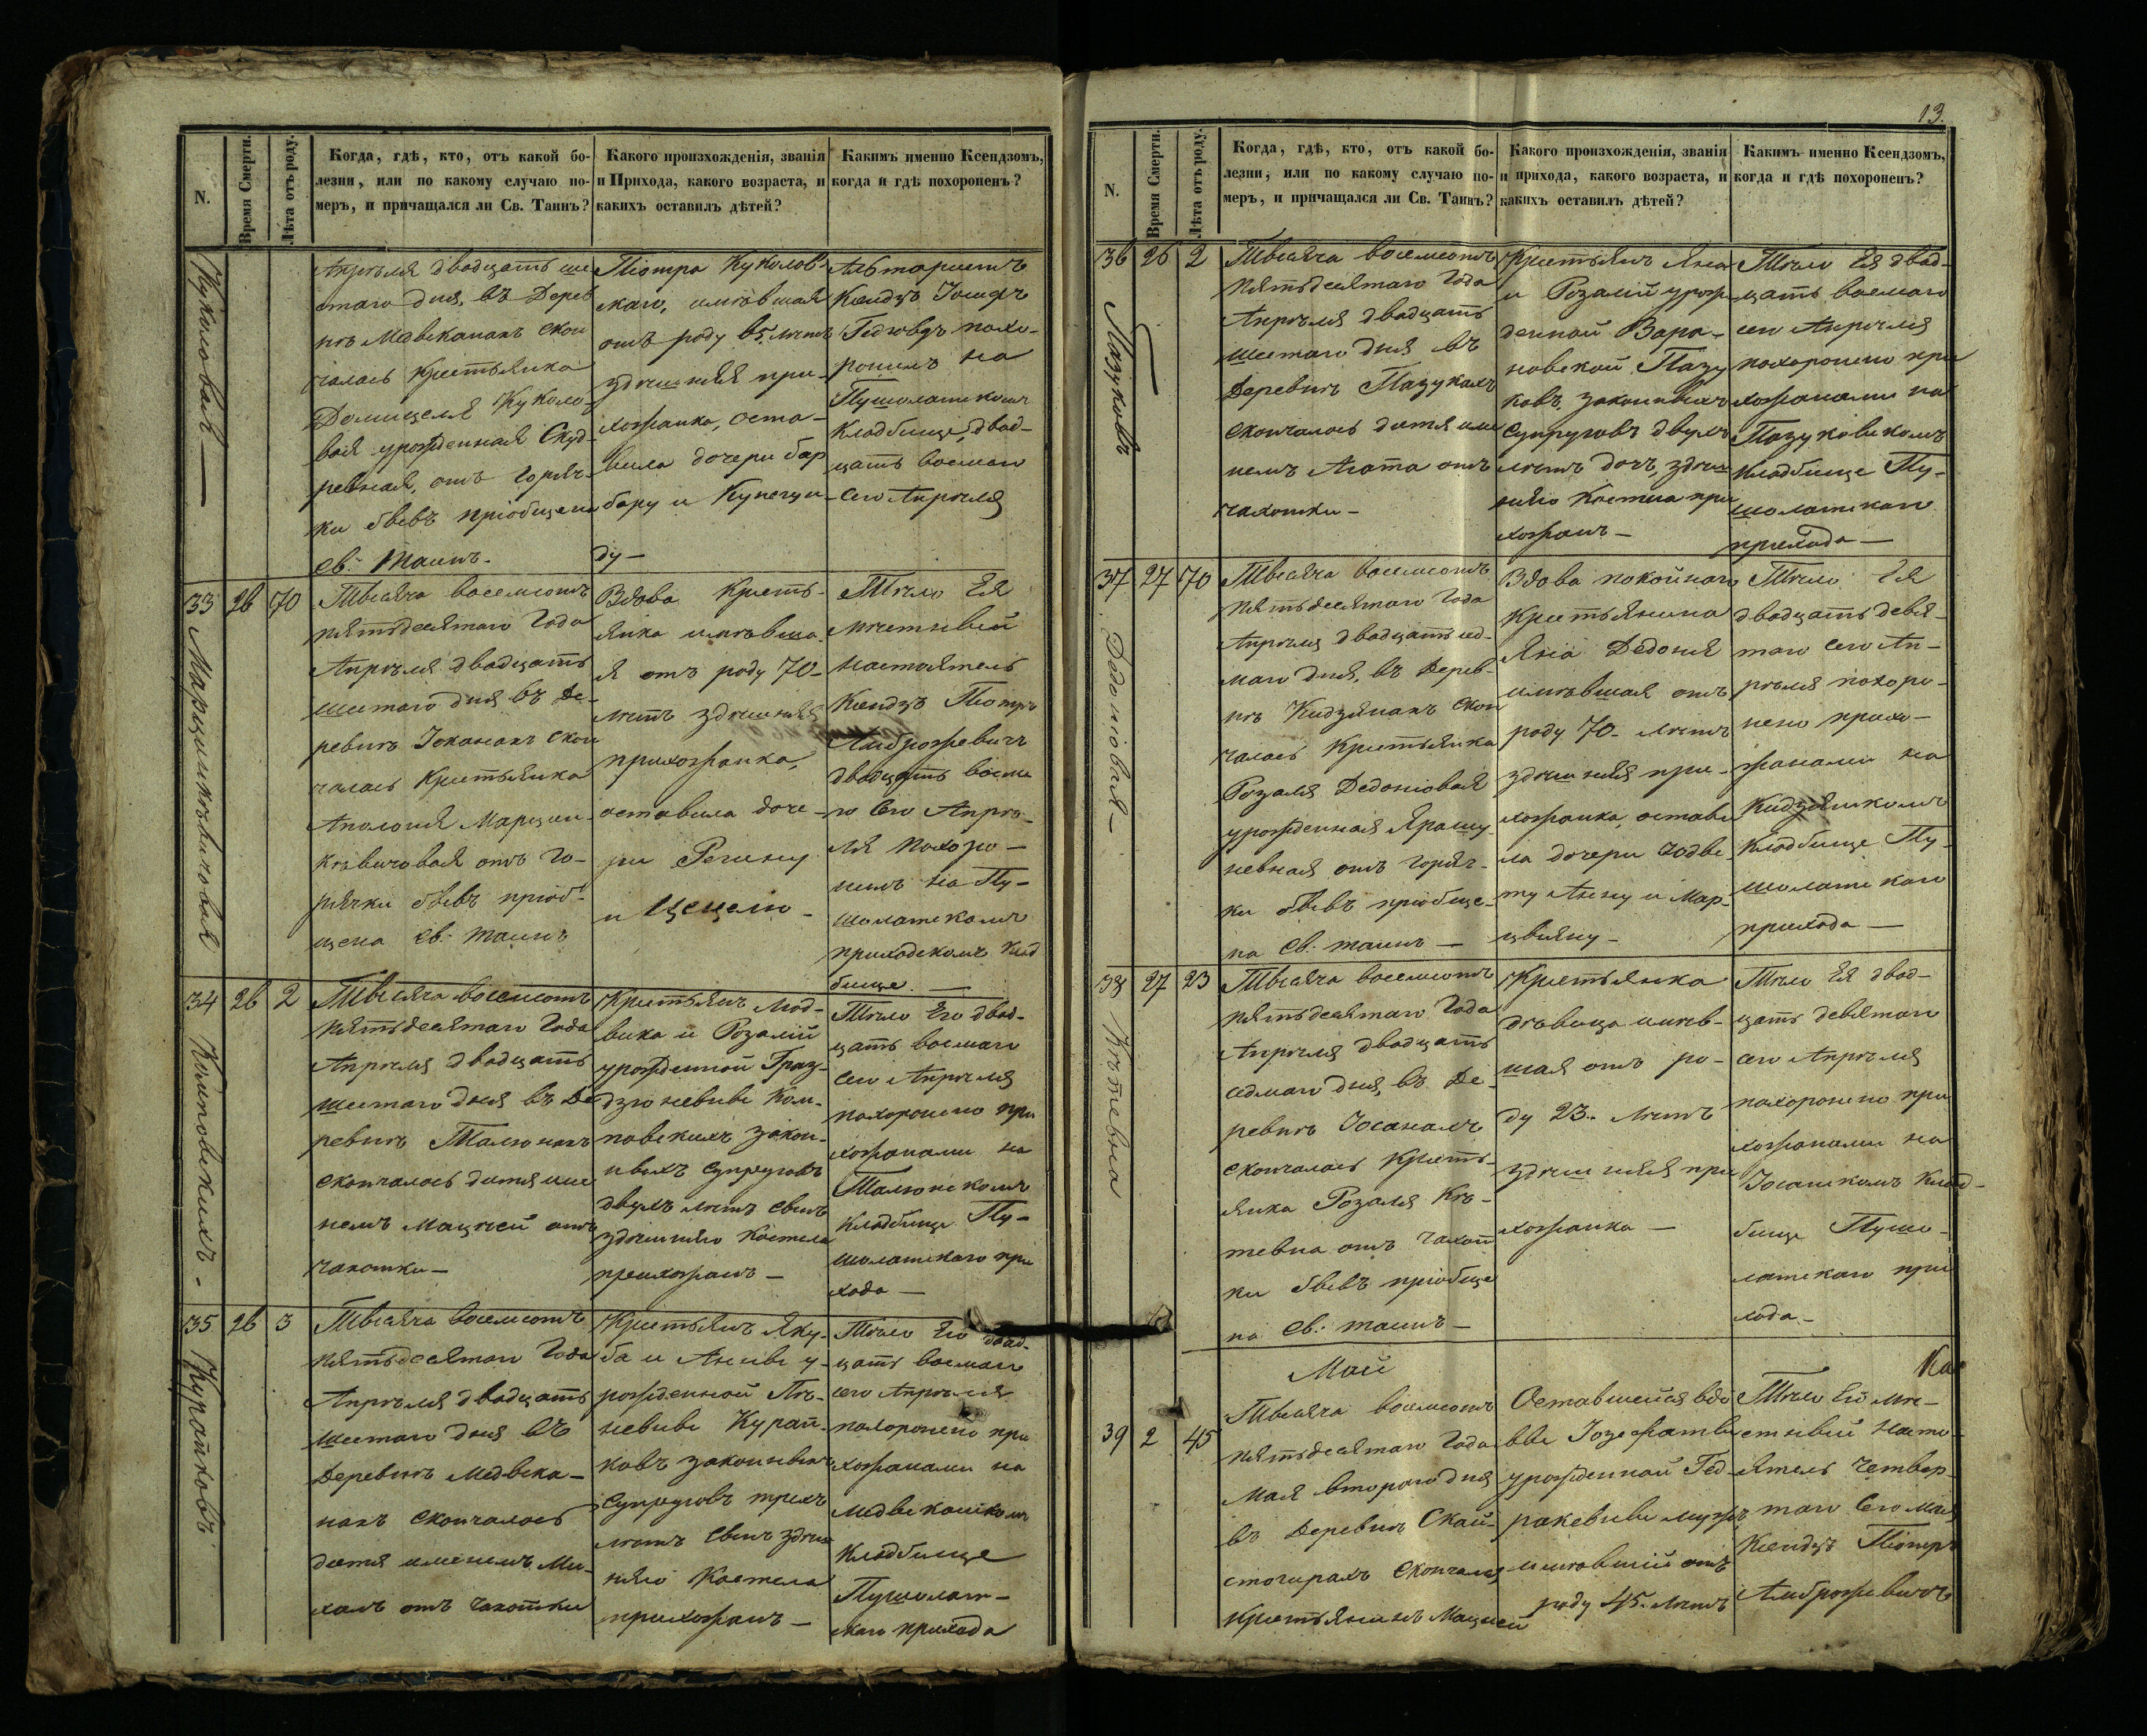 13.
N.
Время Смерти.
Лѣта отъ роду.
Когда, гдѣ, кто, отъ какой бо-
лезни, или по какому случаю по-
меръ, и причащался ли Св. Таинъ?
Какого произхожденія, званія
и Прихода, какого возраста, и
какихъ оставилъ дѣтей?
Какимъ именно Ксендзомъ,
когда и гдѣ похороненъ?
Куколовая
Апрѣля двадцать ше
стаго дня, въ Дерев
нѣ Мевеканахъ скон
чалась крестьянка
Домицеля Куколо-
вая урожденная Скуд-
ревная, отъ горяч-
ки бывъ пріобщена
св: Таинъ.
Піотра Куколов-
скаго, имѣвшая
отъ роду 65. лѣтъ
здѣшняя при-
хожанка, оста-
вила дочери бар
бару и Кунегун-
ду —
Альтаристъ
Ксендзъ Іосифъ
Гедговдъ похо-
ронилъ на
Пушолатскомъ
Кладбище, двад-
цать восьмаго
сего Апрѣля
33
26
70
Марцинкѣвичовая
Тысяча восемсотъ
пятьдесятаго Года
Апрѣля двадцать
шестаго дня въ Де-
ревнѣ Іоканахъ скон
чалась Крестьянка
Аполонія Марцин-
кѣвичовая отъ го-
рячки бывъ пріоб-
щена св: таинъ
Вдова Кресть-
янка имѣвша
я отъ роду 70-
лѣтъ здѣшняя
прихожанка,
оставила доче-
ри Регину
и Цецелю -
Тѣло Ея
мѣстный
Настоятель
Ксендзъ Піотръ
Амброжевичъ
двадцать восма
го Сего Апрѣ-
ля Похоро-
нилъ на Пу-
шолатскомъ
приходскомъ клад
бище. —
34
26
2
Кимповскихъ -
Тысяча восемсотъ
пятьдесятаго Года
Апрѣля двадцать
шестаго дня въ Де
ревнѣ Талюнахъ
скончалось дитя име
немъ Мацѣей отъ
чахотки —
Крестьянъ Люд-
вика и Розаліи
урожденной Граж-
дзюневны Ким-
повскихъ закон-
ныхъ Супруговъ
двухъ лѣтъ сынъ
здѣшняго Костела
прихожанъ —
Тѣло Его двад-
цать восмаго
сего Апрѣля
похоронено при
хожанами на
Талюнскомъ
Кладбище Пу-
шолатскаго при
хода —
35
26
3
Курайковъ
Тысяча восемсотъ
пятьдесятаго Года
Апрѣля двадцать
шестаго дня въ
Деревнѣ Медвека-
нахъ скончалось
дитя именемъ Ми-
халъ отъ чахотки
Крестьянъ Яку-
ба и Анны у-
рожденной Пѣ-
невны Курай-
ковъ законныхъ
Супруговъ трехъ
лѣтъ сынъ здѣш
няго Костела
прихожанъ —
Тѣло Его двад-
цать восмаго
сего Апрѣля
похоронено при
хожанами на
Медвеканскомъ
Кладбище
Пушолат-
скаго прихода
N.
Время Смерти.
Лѣта отъ роду.
Когда, гдѣ, кто, отъ какой бо-
лезни, или по какому случаю по-
меръ, и причащался ли Св. Таинъ?
Какого произхожденія, званія
и прихода, какого возраста, и
какихъ оставилъ дѣтей?
Какимъ именно Ксендзомъ,
когда и гдѣ похороненъ?
36
26
2
Пазуковъ
Тысяча восемсотъ
пятьдесятаго Года
Апрѣля двадцать
шестаго дня въ
Деревнѣ Пазукахъ
скончалось дитя име
немъ Агата отъ
чахотки —
Крестьянъ Яна
и Розаліи урож-
денной Вара-
новской Пазу
ковъ, законныхъ
Супруговъ двухъ
лѣтъ дочь, здѣш
няго Костела при
хожанъ —
Тѣло Ея двад-
цать восмаго
сего Апрѣля
похоронено при
хожанами на
Пазуковскомъ
Кладбище Пу-
шолатскаго
прихода —
37
27
70
Дедонiовая —
Тысяча восемсотъ
пятьдесятаго Года
Апрѣля двадцать сед-
маго дня, въ Дерев-
нѣ Кидзянахъ скон
чалась Крестьянка
Розаля Дедоніовая
урожденная Ярашу-
невная отъ горяч-
ки бывъ пріобще-
на св: таинъ —
Вдова покойнаго
Крестьянина
Яна Дедоня
имѣвшая отъ
роду 70- лѣтъ
здѣшняя при-
хожанка, остави
ла дочери Іодве-
ту Анну и Мар-
цыяну -
Тѣло Ея
двадцать девя-
таго сего Ап-
рѣля похоро-
нено прихо-
жанами на
Кидзянскомъ
Кладбище Пу-
шолатскаго
прихода —
38
27
23
Кѣтевна
Тысяча восемсотъ
пятьдесятаго Года
Апрѣля двадцать
седмаго дня, въ Де-
ревнѣ Іосанахъ
скончалась Кресть-
янка Розаля Кѣ-
тевна отъ чахот
ки бывъ пріобще
на св: таинъ —
Крестьянка
дѣвица имѣв-
шая отъ ро-
ду 23. лѣтъ
здѣшняя при
хожанка —
Тѣло Ея двад-
цать девятаго
сего Апрѣля
похоронено при
хожанами на
Іосанскомъ Клад-
бище Пушо-
латскаго при
хода —
Май
39
2
45
Тысяча восемсотъ
пятьдесятаго Года
Мая втораго дня
въ Деревнѣ Скай-
стогирахъ скончался
Крестьянинъ Мацѣей
Оставшейся вдо
вы Іозефаты
урожденной Гед-
ракевны мужъ,
имѣвшій отъ
роду 45. лѣтъ
Ка
Тѣло Его мѣ-
стный Насто-
ятель четвер-
таго Сего мая
Ксендзъ Піотръ
Амброжевичъ